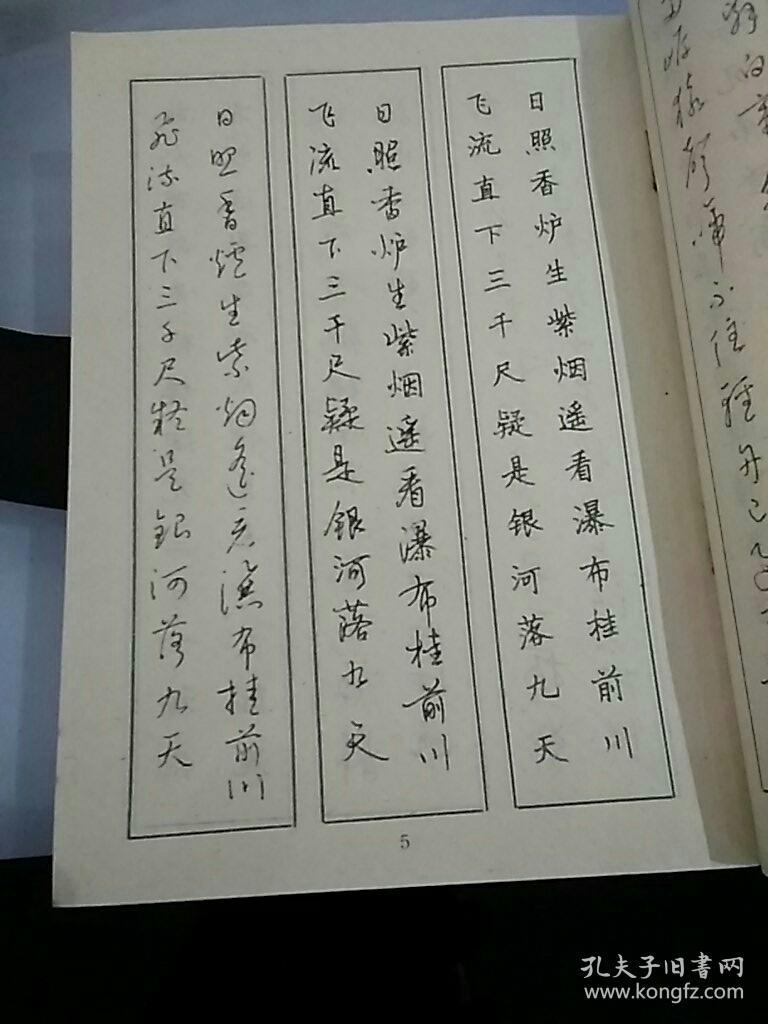 辞白帝
岸猿声啼不住轻舟已
日照香炉生紫烟遥看瀑布桂前川
飞流直下三千尺疑是银河落九天
日照香炉生紫烟遥看瀑布桂前川
飞流直下三千尺疑是银河落九天
日照香爐生紫烟遥看瀑布挂前川
飛流直下三千尺疑是銀河落九天
5
孔夫子旧书网
www.kongfz.com